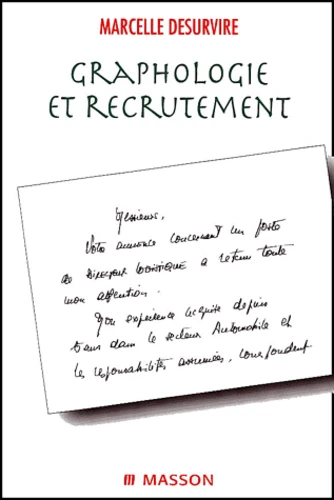 MARCELLE DESURVIRE
GRAPHOLOGIE
ET RECRUTEMENT
Messieurs,
Votre annonce concernant un poste
de DIRECTEUR LOGISTIQUE a retenu toute
mon attention.
Mon expérience acquise depuis
6 ans dans le secteur Automobile et
les responsabilités assumées, correspondent
m MASSON